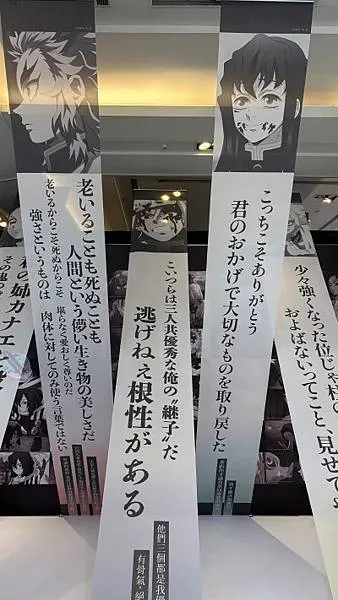 少々強くなった位じゃ
およばないってこと、見せて
こっちこそありがとう
君のおかげで大切なものを取り戻した
こいつらは三人共優秀な俺の“継子”だ
逃げねぇ根性がある
他們三個都是我優
有骨氣，絕
老いることも死ぬことも
人間という儚い生き物の美しさだ
老いるからこそ死ぬからこそ 堪らなく愛おしく尊いのだ
強さというものは 肉体に対してのみ使う言葉ではない
の姉カナエ